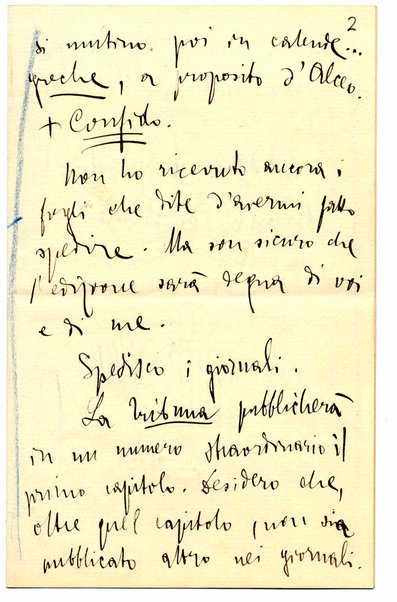 2
si mutino poi in calende...
greche, a proposito d'Alceo.
+ Confido.
Non ho ricevuto ancora i
fogli che dite d'avermi fatto
spedire. Ma son sicuro che
l'edizione sarà degna di voi
e di me.
Spedisco i giornali.
La Tribuna pubblicherà
in un numero straordinario il
primo capitolo. Desidero che,
oltre quel capitolo, non sia
pubblicato altro nei giornali.